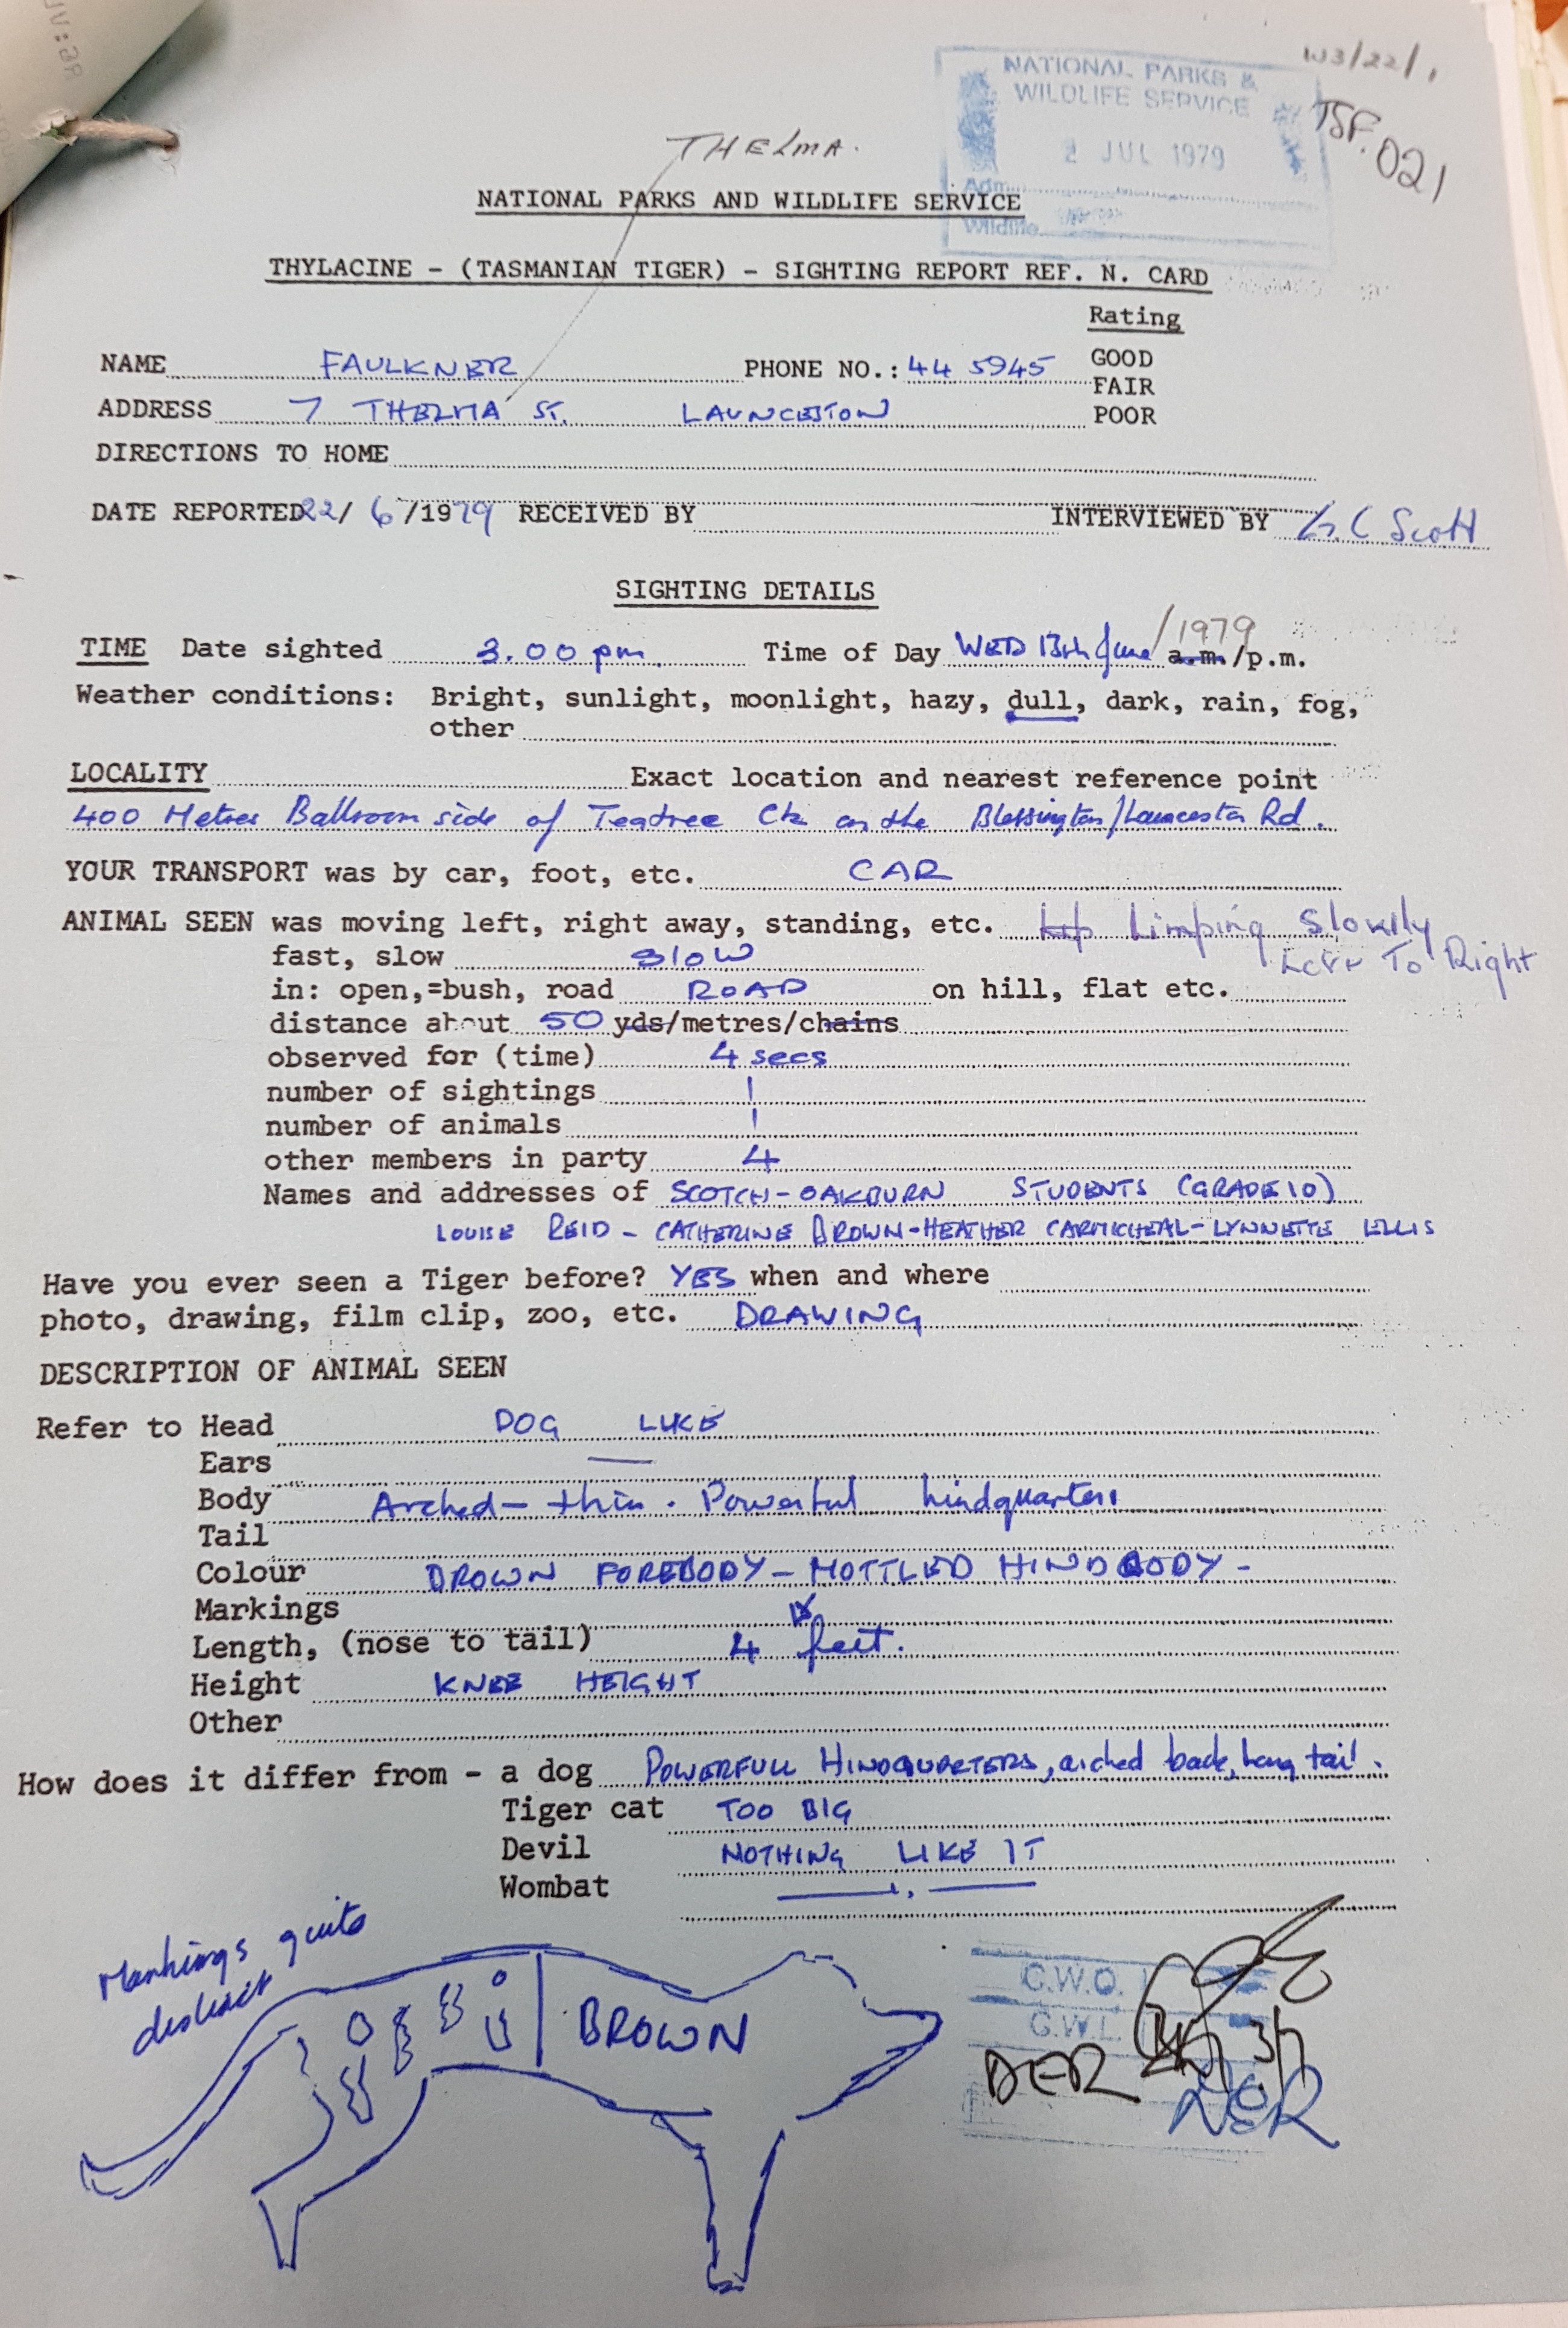 W3/22/1
TSF.021
NATIONAL PARKS &
WILDLIFE SERVICE
2 JUL 1979
Adm.
Wildlife
THELMA.
NATIONAL PARKS AND WILDLIFE SERVICE
THYLACINE - (TASMANIAN TIGER) - SIGHTING REPORT REF. N. CARD
Rating
NAME FAULKNER PHONE NO.: 44 5945 GOOD
FAIR
ADDRESS 7 THELMA ST. LAUNCESTON POOR
DIRECTIONS TO HOME
DATE REPORTED 22/ 6 /1979 RECEIVED BY INTERVIEWED BY G.C Scott
SIGHTING DETAILS
TIME Date sighted 3.00 pm. Time of Day WED 13th June /1979 a.m./p.m.
Weather conditions: Bright, sunlight, moonlight, hazy, dull, dark, rain, fog,
other
LOCALITY Exact location and nearest reference point
400 Metres Ballroom side of Teatree Ck on the Blessington/Launceston Rd.
YOUR TRANSPORT was by car, foot, etc. CAR
ANIMAL SEEN was moving left, right away, standing, etc. Limping Slowly
Left To Right
fast, slow SLOW
in: open,=bush, road ROAD on hill, flat etc.
distance about 50 yds/metres/chains
observed for (time) 4 secs
number of sightings 1
number of animals 1
other members in party 4
Names and addresses of SCOTCH-OAKBURN STUDENTS (GRADE 10)
LOUISE REID - CATHERINE BROWN - HEATHER CARMICHEAL - LYNNETTE ELLIS
Have you ever seen a Tiger before? YES when and where
photo, drawing, film clip, zoo, etc. DRAWING
DESCRIPTION OF ANIMAL SEEN
Refer to Head DOG LIKE
Ears —
Body Arched - thin. Powerful hindquarters
Tail
Colour BROWN FOREBODY - MOTTLED HINDBODY -
Markings
Length, (nose to tail) 4 feet.
Height KNEE HEIGHT
Other
How does it differ from - a dog POWERFULL HINDQUARTERS, arched back, long tail.
Tiger cat TOO BIG
Devil NOTHING LIKE IT
Wombat —— " ——
Markings quite
distinct
BROWN
C.W.O.
G.W.L.
DER 3/7